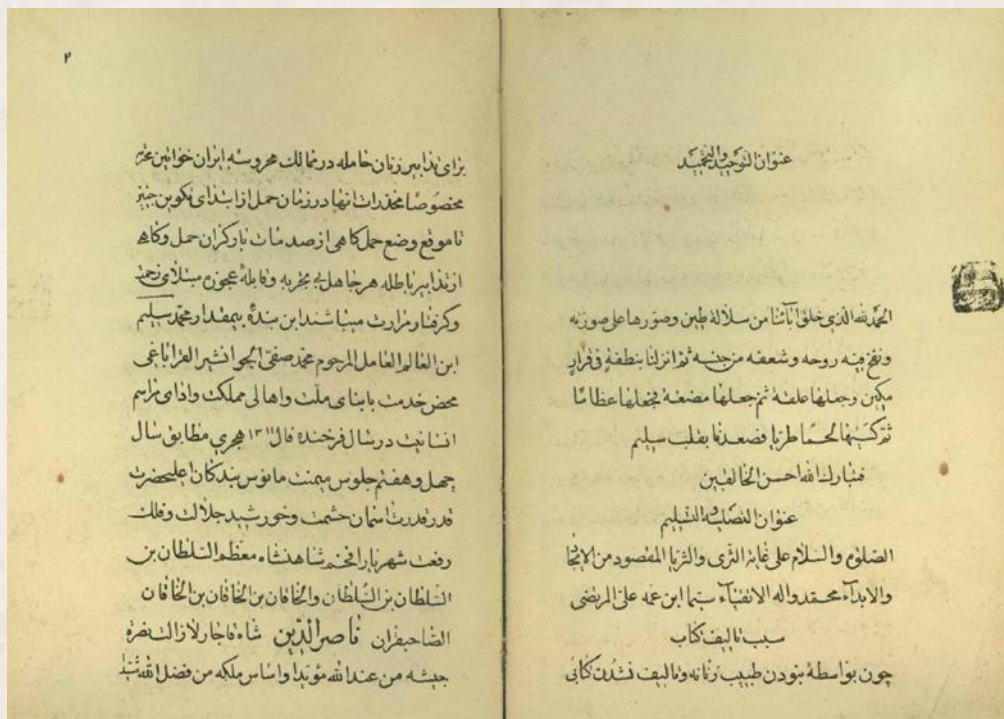 عنوان التوحید والتمجید
الحمد لله الذی خلق آبائنا من سلالة طین وصورها علی صورته
ونفخ فیه روحه وشعفه من جنبه ثم انزلنا بنطفة فی قرار
مکین وجعلها علقة ثم جعلها مضغة فجعلها عظاما
ثم کسیها لحما طریا فصعدنا بقلب سلیم
فتبارک الله احسن الخالقین
عنوان التصلیة والتسلیم
الصلوة والسلام علی غایة الثری والثریا المقصود من الایجا
والابداء محمد واله الاتقیاء سیما ابن عمه علی المرتضی
سبب تالیف کتاب
چون بواسطهٔ نبودن طبیب زنانه وتالیف نشدن کتابی
۲
برای تدابیر زنان حامله در ممالک محروسه ایران خواتین محترمه
مخصوصا مخدرات انها در زمان حمل از ابتدای تکوین جنین
تا موقع وضع حمل کاهی از صدمات بارکران حمل وکاه
از تدابیر باطله هر جاهل بی تجربه وقابلهٔ عجوزه مبتلای زحمت
وکرفتار مرارت میباشند این بندهٔ بیمقدار محمد سلیم
ابن العالم العامل المرحوم محمد صفی الجوانشیر القراباغی
محض خدمت بابنای ملت واهالی مملکت وادای مراسم
انسانیت در سال فرخنده فال ۱۳۱۱ هجری مطابق سال
چهل وهفتم جلوس میمنت مانوس بندکان اعلیحضرت
قدر قدرت اسمان حشمت وخورشید جلالت وفلک
رفعت شهریار افخم شاهنشاه معظم السلطان بن
السلطان بن السلطان والخاقان بن الخاقان بن الخاقان
الصاحبقران ناصرالدین شاه قاجار لازالت نصرة
جیشه من عند الله مؤیدا واساس ملکه من فضل الله